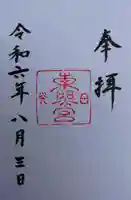 奉拝
東照宮
令和六年八月三日